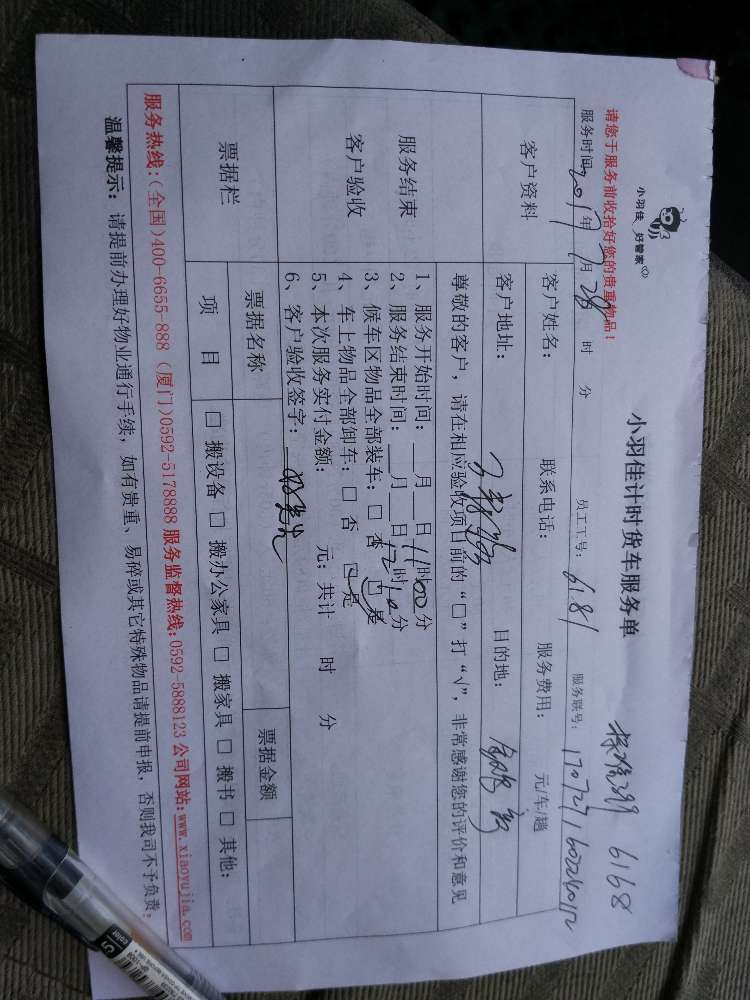 小羽佳 好管家
小羽佳计时货车服务单
6168
请您于服务前收拾好您的贵重物品!
服务时间: 2017年7月28 时 分 员工工号: 6181 服务联号:
客户资料
客户姓名: 联系电话: 服务费用: 元/车/趟
客户地址: 目的地:
服务结束
客户验收
尊敬的客户,请在相应验收项目前的“□”打“√”,非常感谢您的评价和意见
1、服务开始时间:__月__日11时00分
2、服务结束时间:__月__日12时10分
3、候车区物品全部装车:□ 否 □ 是
4、车上物品全部卸车:□ 否 □ 是
5、本次服务实付金额: 元;共计 时 分
6、客户验收签字:
票据栏
票据名称 票据金额
项 目 □ 搬设备 □ 搬办公家具 □ 搬家具 □ 搬书 □ 其他:
服务热线:(全国)400-6655-888 (厦门)0592-5178888 服务监督热线:0592-5888123 公司网站:www.xiaoyujia.com
温馨提示:请提前办理好物业通行手续,如有贵重、易碎或其它特殊物品请提前申报,否则我司不予负责。